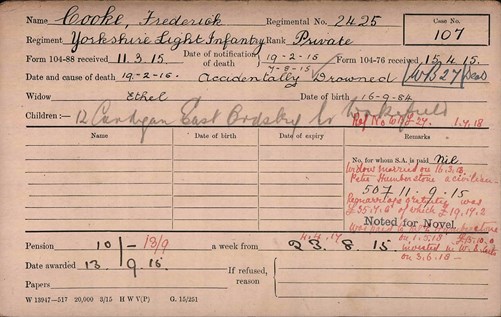 Name Cooke, Frederick Regimental No. 2425 Case No. 107
Regiment Yorkshire Light Infantry Rank Private
Form 104-88 received 11.3.15 Date of notification of death 19-2-16 Form 104-76 received 15.4.15.
7-8-15
Date and cause of death 19-2-16. Accidentally Drowned Dead
Widow Ethel Date of birth 16-9-84
Children:— 12 Cardigan East Ardsley Nr Wakefield
1.4.18
Name Date of birth Date of expiry Remarks
No. for whom S.A. is paid Nil
Widow married on 16.3.18
Pete Humberstone a civilian
507 11-9-15
Remarriage gratuity was
£35.7.6 of which £19.17.2
Noted for Novel.
was paid
on 1.5.18 £15.10.
invested in
on 3.6.18 -
Pension 10/- 13/9 a week from 4.4.17 23.8.15
Date awarded 13.9.15 If refused, reason
Papers
W 13947—517 20,000 3/15 H W V(P) G. 15/251